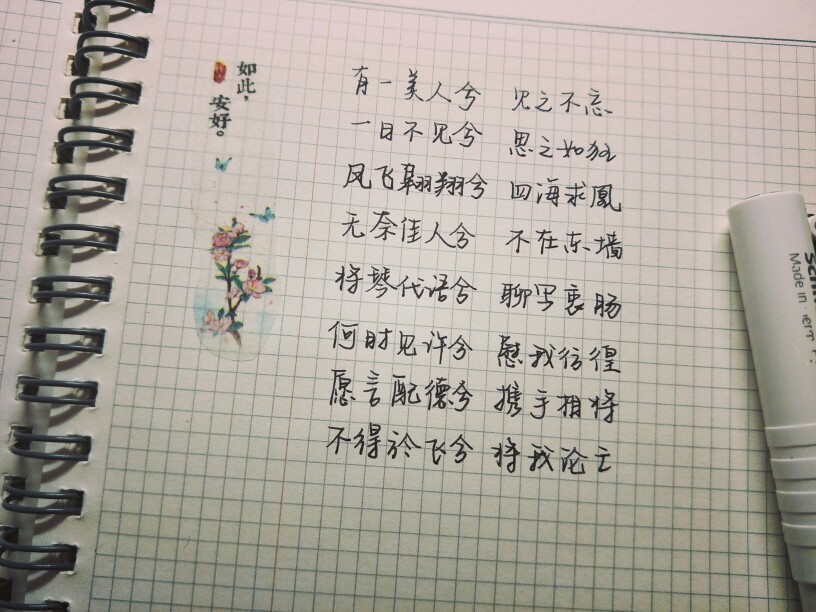 如此，
安好。
有一美人兮 见之不忘
一日不见兮 思之如狂
凤飞翱翔兮 四海求凰
无奈佳人兮 不在东墙
将琴代语兮 聊写衷肠
何时见许兮 慰我彷徨
愿言配德兮 携手相将
不得於飞兮 将我论亡
Made in